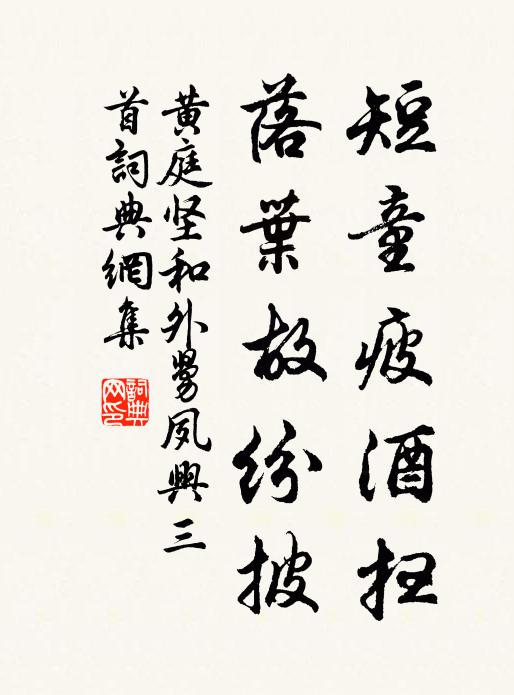 短童疲酒扫
落葉故紛披
黄庭坚和外舅夙興三
首詞典網集
詞典
网印